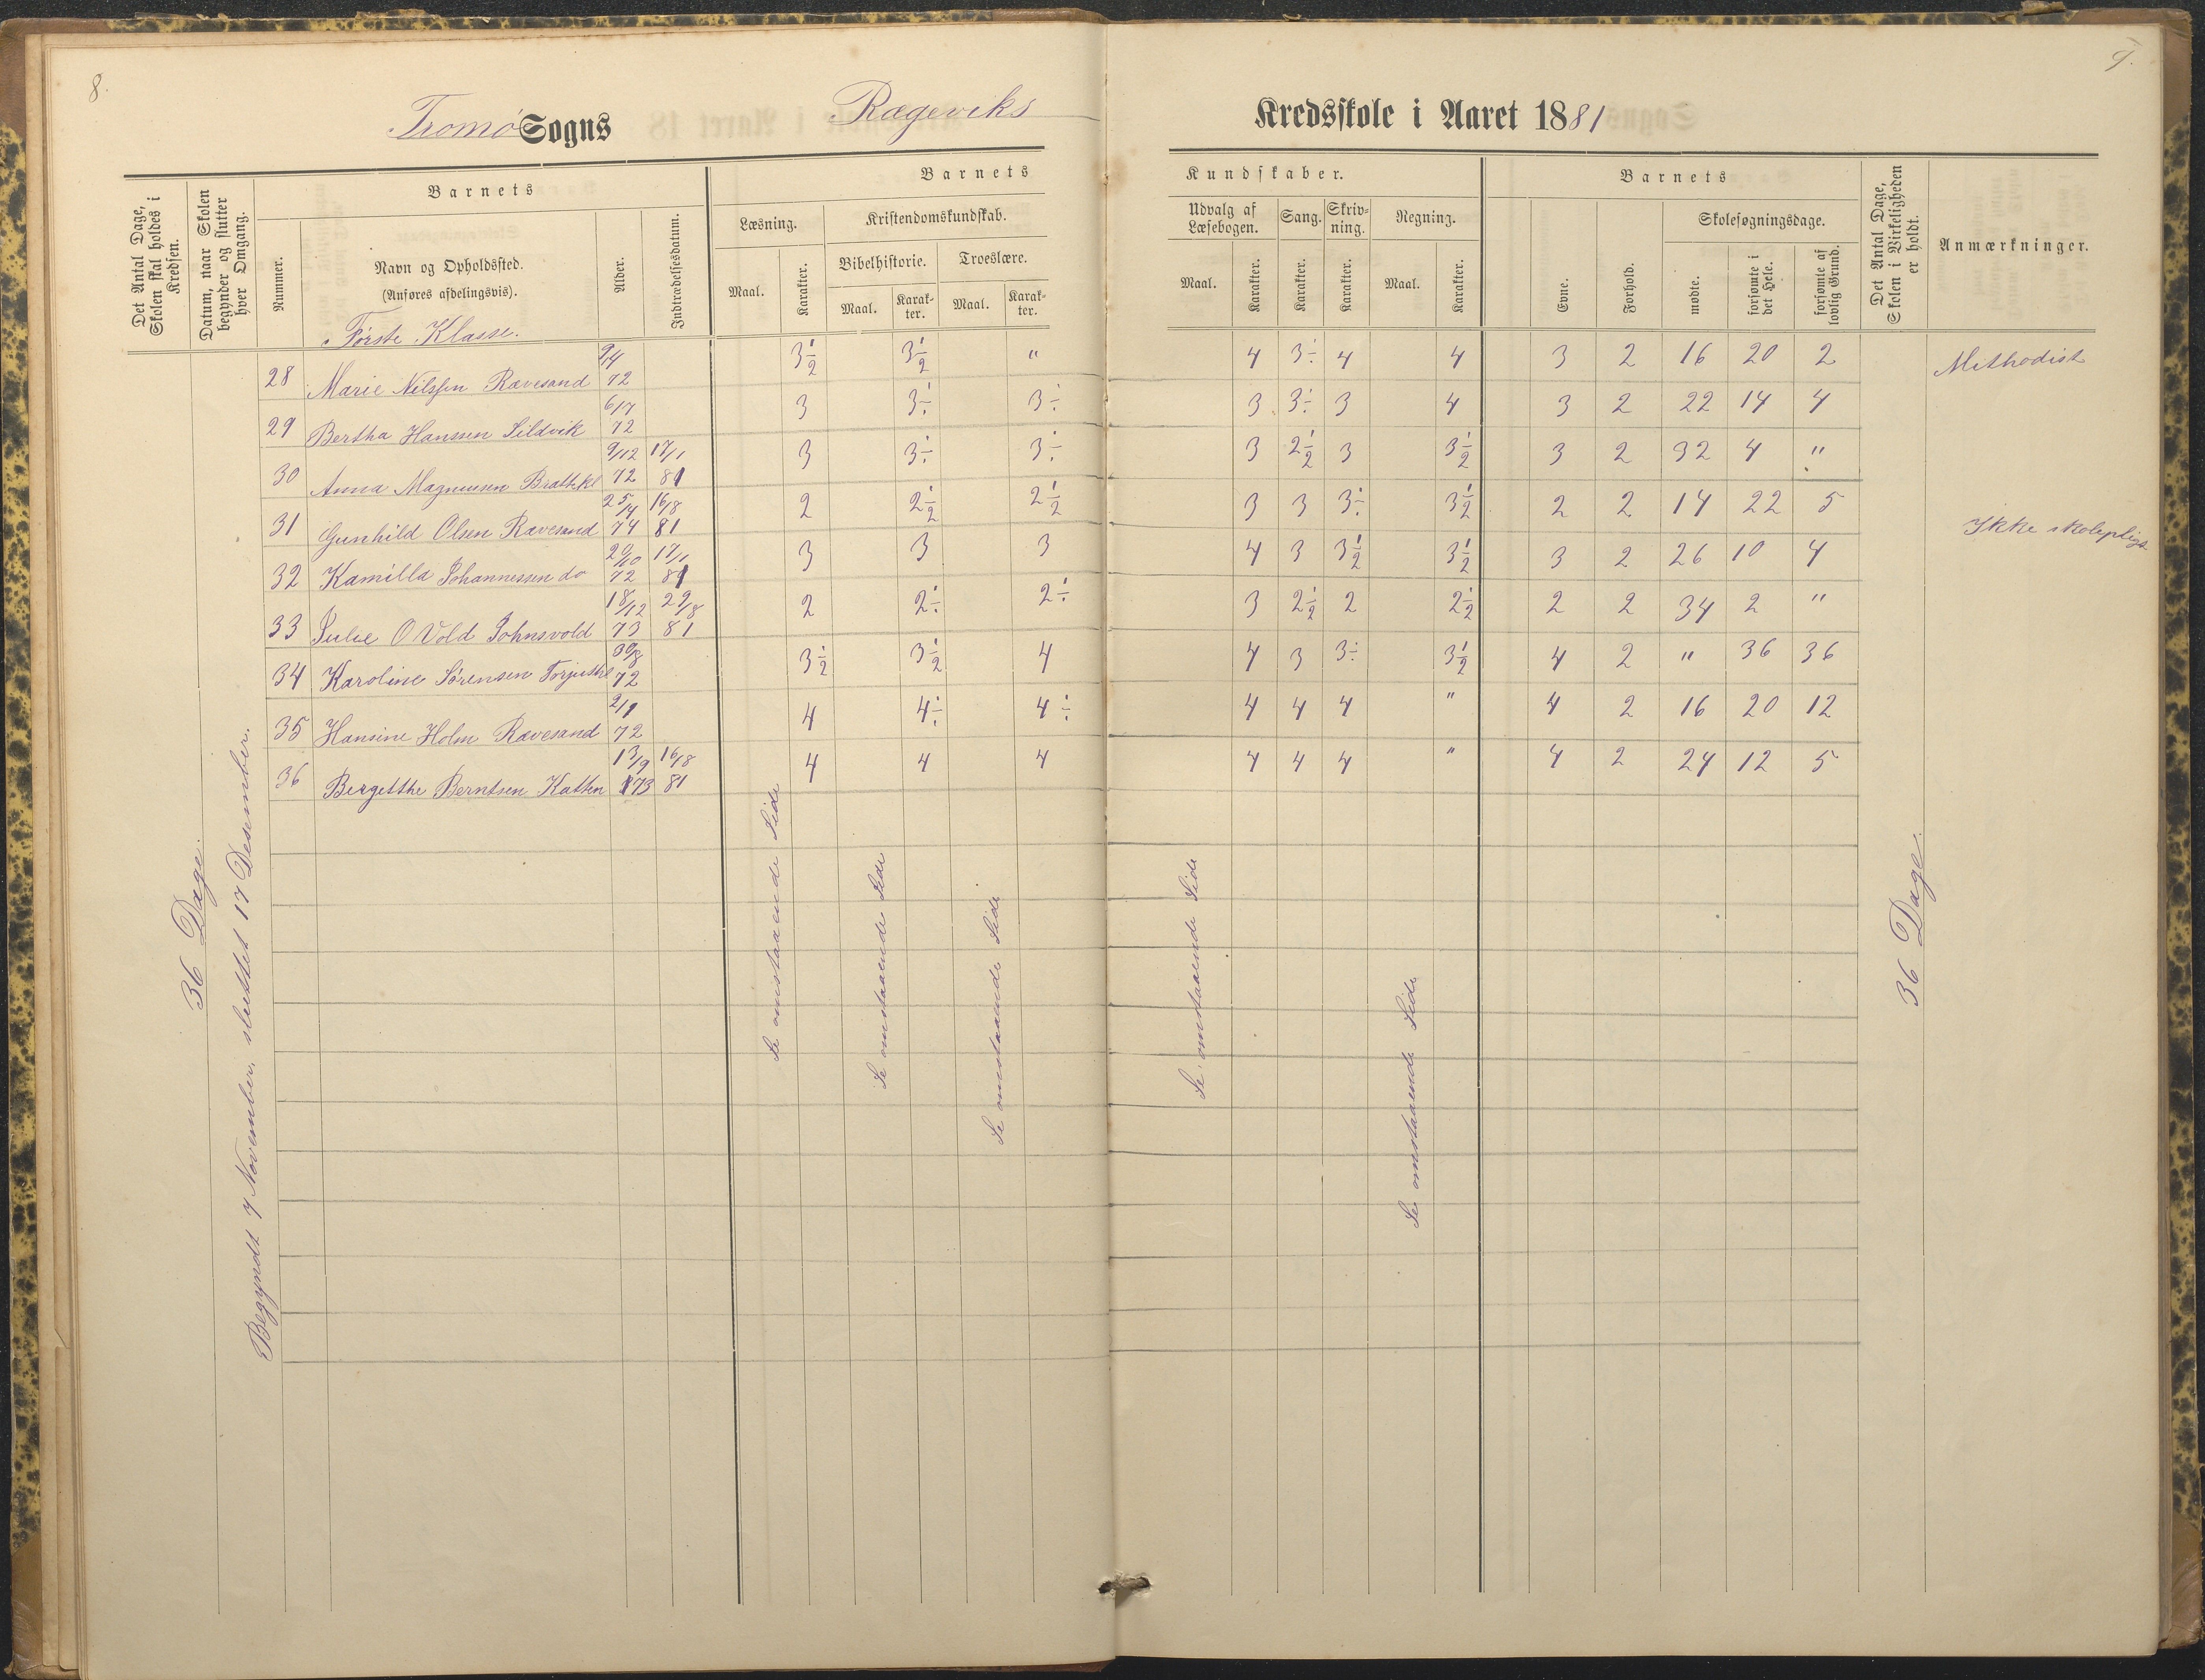 8.
9.
Tromø Sogns Rægeviks Kredsskole i Aaret 1881
Det Antal Dage, Skolen skal holdes i Kredsen.
Datum, naar Skolen begynder og slutter hver Omgang.
Nummer.
Barnets
Navn og Opholdssted.
(Anføres afdelingsvis).
Alder.
Indtrædelsesdatum.
Barnets Kundskaber.
Læsning.
Maal. Karakter.
Kristendomskundskab.
Bibelhistorie. Troeslære.
Maal. Karakter. Maal. Karakter.
Udvalg af Læsebogen.
Maal. Karakter.
Sang.
Karakter.
Skrivning.
Karakter.
Regning.
Maal. Karakter.
Barnets
Evne. Forhold.
Skolesøgningsdage.
mødte. forsømte i det Hele. forsømte af lovlig Grund.
Det Antal Dage, Skolen i Virkeligheden er holdt.
Anmærkninger.
Første Klasse.
28 Marie Nilssen Ravesand 9/4 72 3½ 3½ " 4 3÷ 4 4 3 2 16 20 2 Methodist
29 Bertha Hanssen Sildvik 6/7 72 3 3÷ 3÷ 3 3÷ 3 4 3 2 22 14 4
30 Anna Magnussen Brattekl 9/12 72 17/1 81 3 3÷ 3÷ 3 2½ 3 3½ 3 2 32 4 "
31 Gunhild Olsen Ravesand 25/4 74 16/8 81 2 2½ 2½ 3 3 3÷ 3½ 2 2 14 22 5 Ikke skolepligt
32 Kamilla Johannessen do 20/10 72 17/1 81 3 3 3 4 3 3½ 3½ 3 2 26 10 4
33 Julie O Vold Johnsvold 18/12 73 29/8 81 2 2÷ 2÷ 3 2½ 2 2½ 2 2 34 2 "
34 Karoline Sørensen Torjusthl 30/8 72 3½ 3½ 4 4 3 3÷ 3½ 4 2 " 36 36
35 Hansine Holm Ravesand 2/1 72 4 4÷ 4÷ 4 4 4 " 4 2 16 20 12
36 Bergetthe Berntsen Katten 13/9 73 16/8 81 4 4 4 4 4 4 " 4 2 24 12 5
36 Dage.
Begyndt 7 November, sluttet 17 Desember.
Se omstaaende Side
Se omstaaende Side
Se omstaaende Side
Se omstaaende Side
Se omstaaende Side
36 Dage.